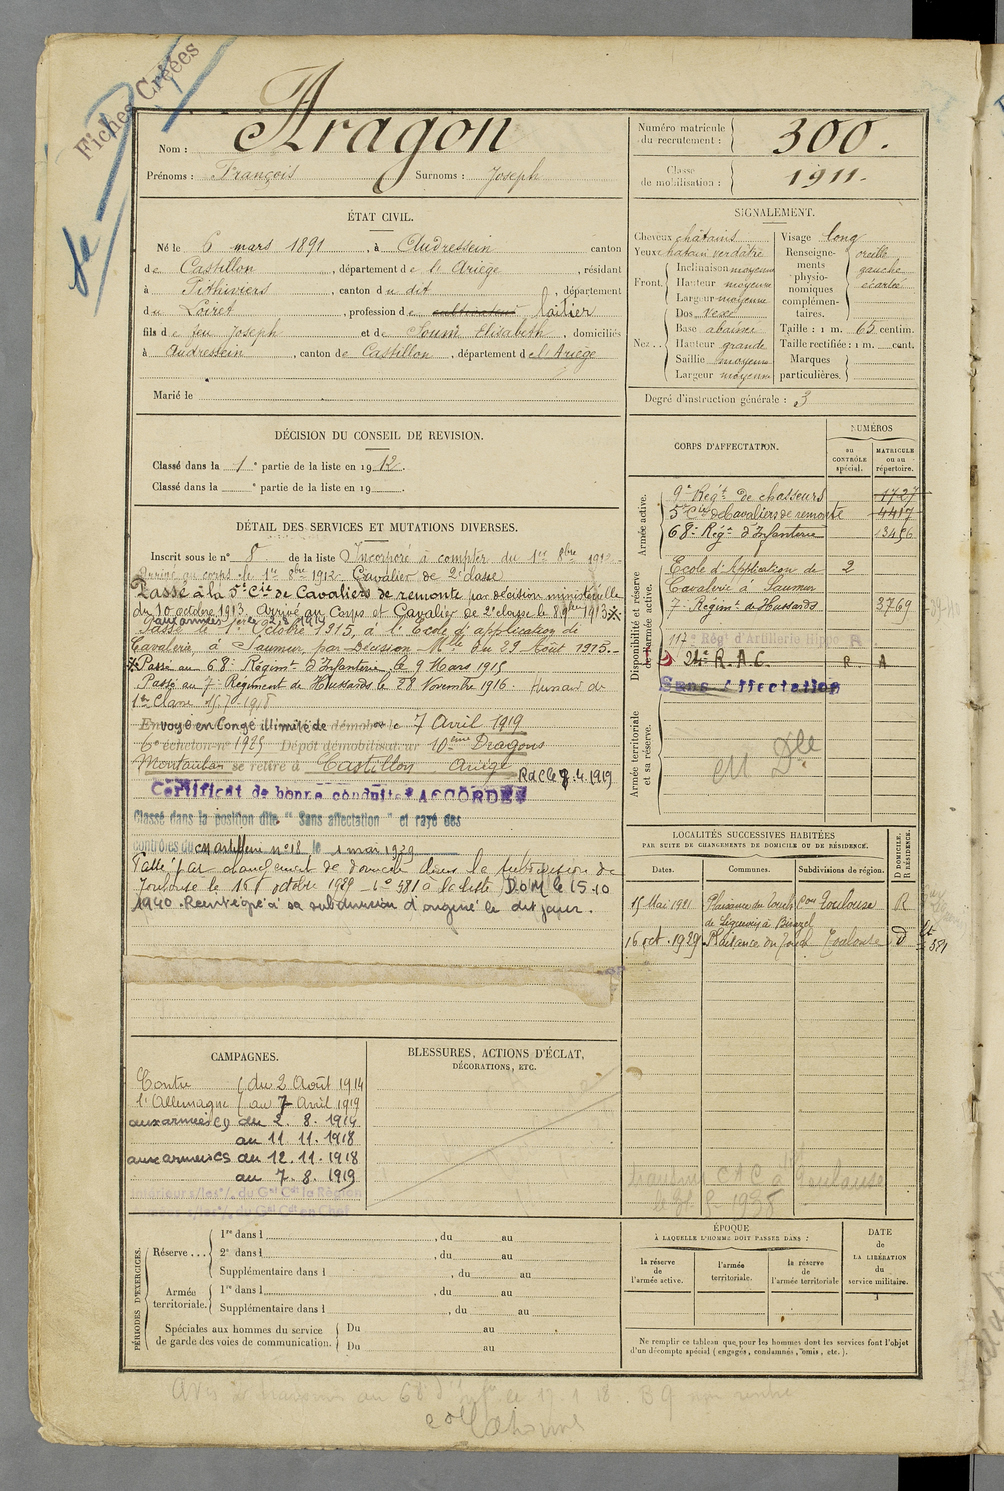 Fiches Créées
Aragon
Nom :
Prénoms : François Surnoms : Joseph
Numéro matricule du recrutement : 300.
Classe de mobilisation : 1911.
ÉTAT CIVIL.
Né le 6 mars 1891, à Audressein canton
de Castillon, département de l'Ariège, résidant
à Pithiviers, canton du dit, département
du Loiret, profession de cultivateur laitier
fils de feu Joseph et de Soum Elisabeth, domiciliés
à Audressein, canton de Castillon, département de l'Ariège
Marié le
SIGNALEMENT.
Cheveux châtains
Yeux chatain verdâtre
Front. Inclinaison moyenne
Hauteur moyenne
Largeur moyenne
Nez.. Dos vexe
Base abaissée
Hauteur grande
Saillie moyenne
Largeur moyenne
Visage long
Renseignements physionomiques complémentaires. oreille gauche écartée
Taille : 1 m. 65 centim.
Taille rectifiée : 1 m. cent.
Marques particulières.
Degré d'instruction générale : 3
DÉCISION DU CONSEIL DE REVISION.
Classé dans la 1e partie de la liste en 1912.
Classé dans la e partie de la liste en 19
DÉTAIL DES SERVICES ET MUTATIONS DIVERSES.
Inscrit sous le n° 8 de la liste Incorporé à compter du 1er 8bre 1912.
Arrivé au corps le 1er 8bre 1912 Cavalier de 2e classe
Passé à la 5e Cie de Cavaliers de remonte par décision ministérielle
du 10 octobre 1913. Arrivé au Corps et Cavalier de 2e classe le 1913
Passé le 1er Octobre 1915, à l'Ecole d'application de
Cavalerie, à Saumur, par Décision Mlle du 29 Août 1915.
Passé au 68e Régimt d'Infanterie le 9 Mars 1915
Passé au 7e Régiment de Hussards le 28 Novembre 1916. Hussard de
1re Classe
Envoyé en Congé illimité de démobon le 7 Avril 1919
6e échelon n° 1925 Dépôt démobilisateur 10ème Dragons
Montauban se retire à Castillon Ariège RdC le 7.4.1919
Certificat de bonne conduite "ACCORDÉ"
Classé dans la position dite "Sans affectation" et rayé des
contrôles du cm artillerie n° 18 le 1 mai 1929
Passé par changement de domicile dans la subdivision de
Toulouse le 16 octobre 1929 n° 581 à la liste DoM le 15-10
1940. Reintégré à sa subdivision d'origine le dit jour.
CORPS D'AFFECTATION.
NUMÉROS
au CONTRÔLE spécial.
MATRICULE ou au répertoire.
Armée active.
9e Régt de chasseurs 1727
5e Cie de Cavaliers de remonte 4417
68e Régt d'Infanterie 13456
Disponibilité et réserve de l'armée active.
Ecole d'Application de Cavalerie à Saumur 2
7e Régimt de Hussards 3769
117 Régt d'Artillerie Hippo R
24e R.A.C. R. A
Sans Affectation
Armée territoriale et sa réserve.
en Dlle
LOCALITÉS SUCCESSIVES HABITÉES
PAR SUITE DE CHANGEMENTS DE DOMICILE OU DE RÉSIDENCE.
Dates. Communes. Subdivisions de région. D DOMICILE. R RÉSIDENCE.
15 Mai 1921 Plaisance du Touch con Toulouse R
16 oct. 1929 Plaisance du Touch Toulouse D
581
CAMPAGNES.
Contre l'Allemagne du 2 Août 1914
au 7 Avril 1919
aux armées CD du 2. 8. 1914
au 11 11. 1918
aux armées CS du 12. 11. 1918
au 7. 8. 1919
BLESSURES, ACTIONS D'ÉCLAT,
DÉCORATIONS, ETC.
PÉRIODES D'EXERCICES.
Réserve... 1re dans l , du au
2e dans l , du au
Supplémentaire dans l , du au
Armée territoriale. 1re dans l , du au
Supplémentaire dans l , du au
Spéciales aux hommes du service de garde des voies de communication. Du au
Du au
ÉPOQUE
À LAQUELLE L'HOMME DOIT PASSER DANS :
la réserve de l'armée active.
l'armée territoriale.
la réserve de l'armée territoriale
DATE de LA LIBÉRATION du service militaire.
Ne remplir ce tableau que pour les hommes dont les services font l'objet
d'un décompte spécial (engagés, condamnés, omis, etc.).